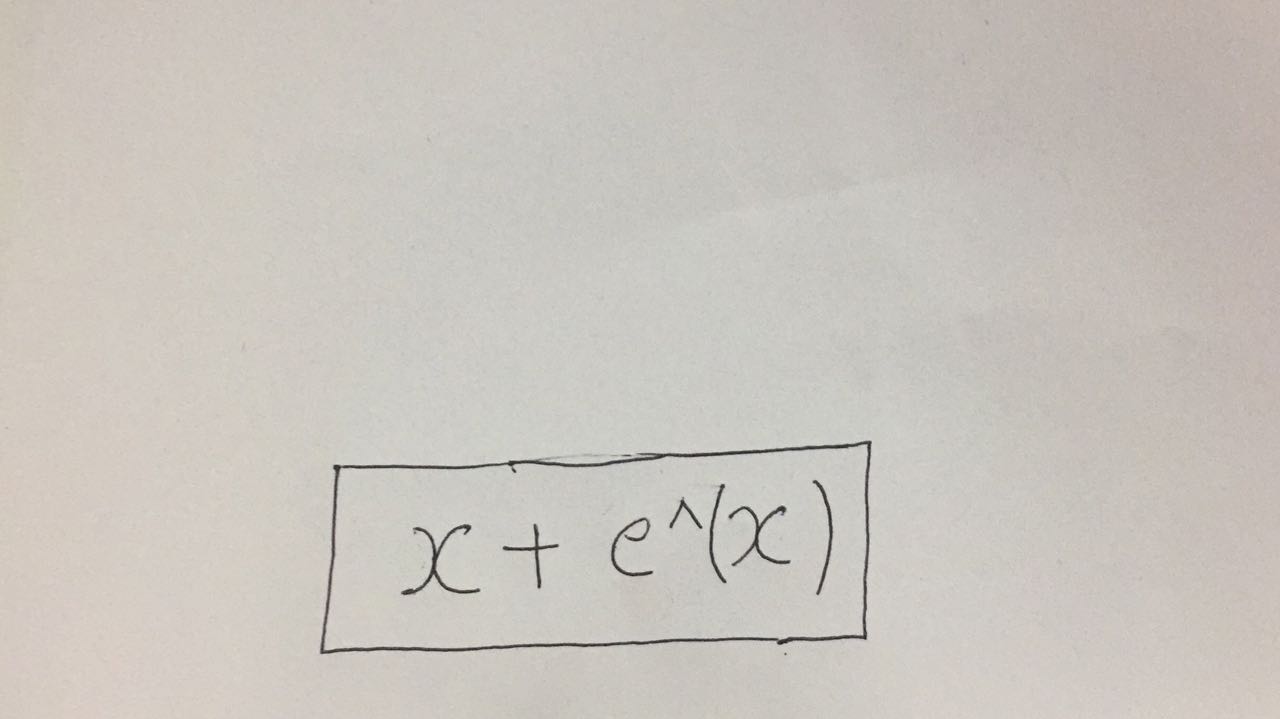 x + e^(x)